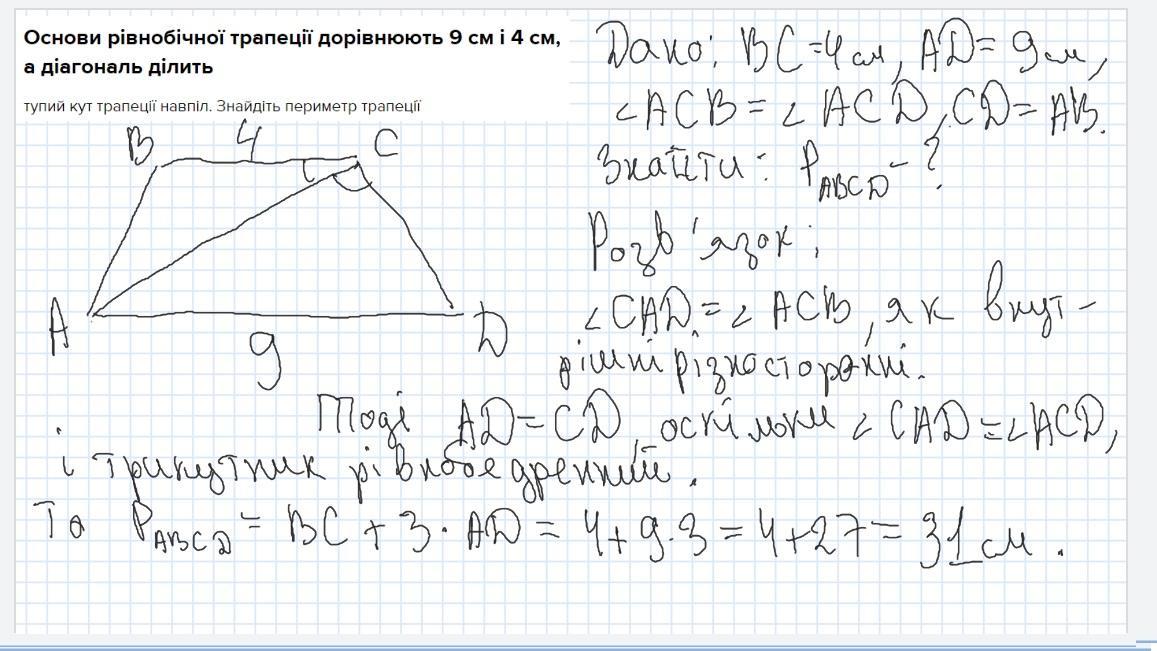 Основи рівнобічної трапеції дорівнюють 9 см і 4 см,
а діагональ ділить
тупий кут трапеції навпіл. Знайдіть периметр трапеції
Дано: BC=4см, AD=9см,
∠ACB=∠ACD, CD=AB.
Знайти: P_ABCD-?
Розв'язок:
∠CAD=∠ACB, як внут-
рішні різносторонні.
Тоді AD=CD, оскільки ∠CAD=∠ACD,
і трикутник рівнобедренний.
То P_ABCD=BC+3·AD=4+9·3=4+27=31см.
B 4 C
A 9 D